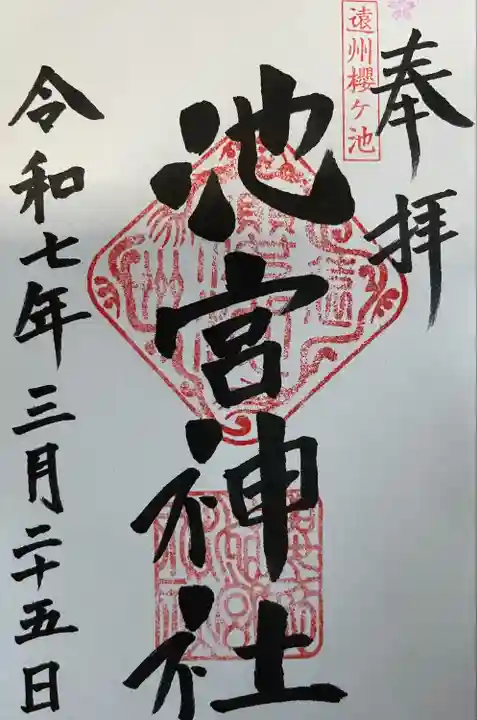 奉拝
遠州櫻ケ池
池宮神社
令和七年三月二十五日